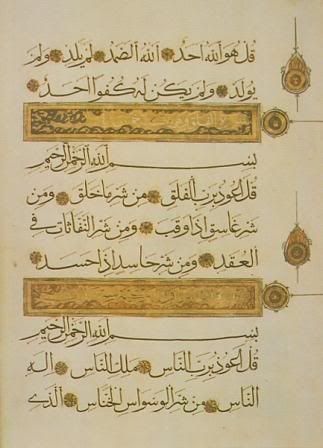 قُل هُوَ اللهُ أَحَدٌ اللهُ الصَّمَدُ لَم يَلِد وَلَم
يُولَد وَلَم يَكُن لَهُ كُفُوًا أَحَدٌ
بِسمِ اللهِ الرَّحمٰنِ الرَّحِيمِ
قُل أَعُوذُ بِرَبِّ الفَلَقِ مِن شَرِّ مَا خَلَقَ وَمِن
شَرِّ غَاسِقٍ إِذَا وَقَبَ وَمِن شَرِّ النَّفَّاثَاتِ فِي
العُقَدِ وَمِن شَرِّ حَاسِدٍ إِذَا حَسَدَ
بِسمِ اللهِ الرَّحمٰنِ الرَّحِيمِ
قُل أَعُوذُ بِرَبِّ النَّاسِ مَلِكِ النَّاسِ إِلٰهِ
النَّاسِ مِن شَرِّ الوَسوَاسِ الخَنَّاسِ الَّذِي